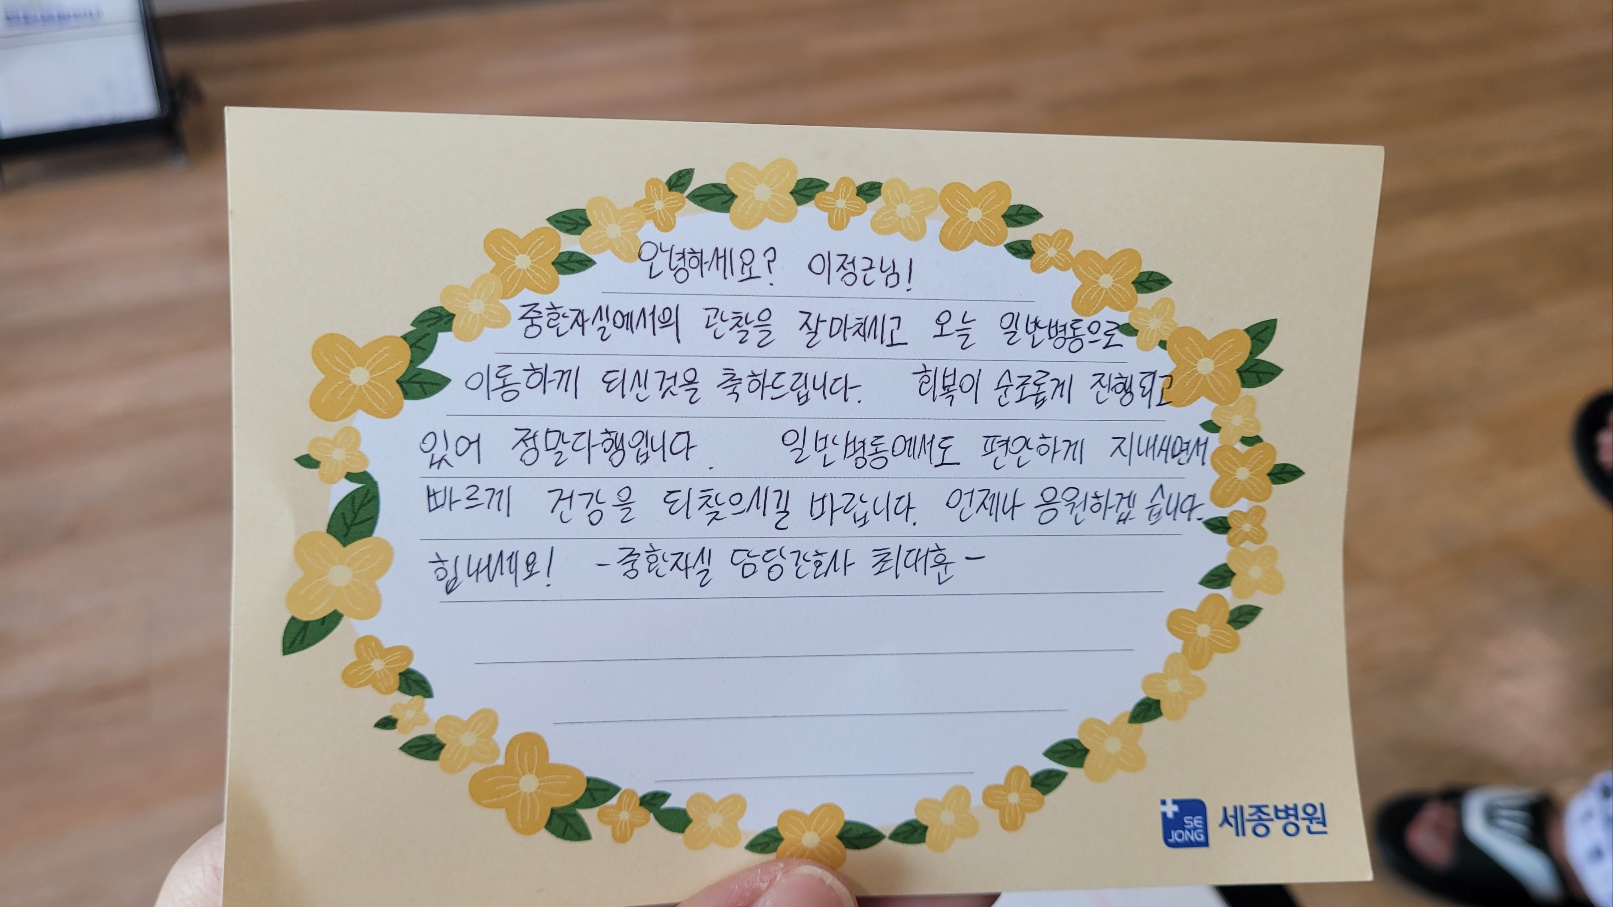 안녕하세요? 이정근님!
중환자실에서의 관찰을 잘마치시고 오늘 일반병동으로
이동하게 되신것을 축하드립니다. 회복이 순조롭게 진행되고
있어 정말다행입니다. 일반병동에서도 편안하게 지내시면서
빠르게 건강을 되찾으시길 바랍니다. 언제나 응원하겠습니다.
힘내세요! -중환자실 담당간호사 최대훈-
SE
JONG
세종병원